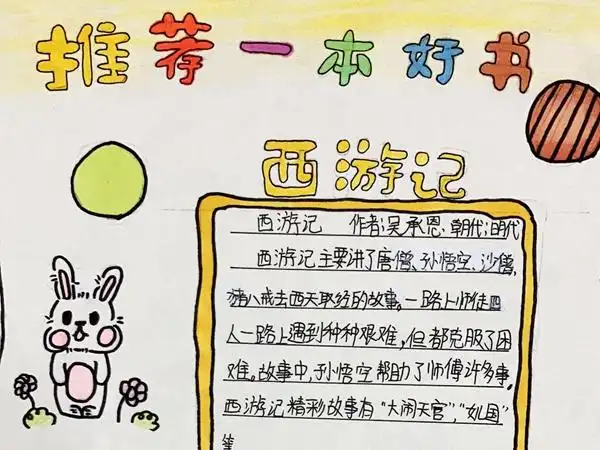 推荐一本好书
西游记
西游记 作者:吴承恩、朝代:明代
西游记主要讲了唐僧、孙悟空、沙僧,
猪八戒去西天取经的故事。一路上师徒四
人一路上遇到种种艰难,但都克服了困
难。故事中,孙悟空帮助了师傅许多事.
西游记精彩故事有“大闹天宫”,“女儿国”
等